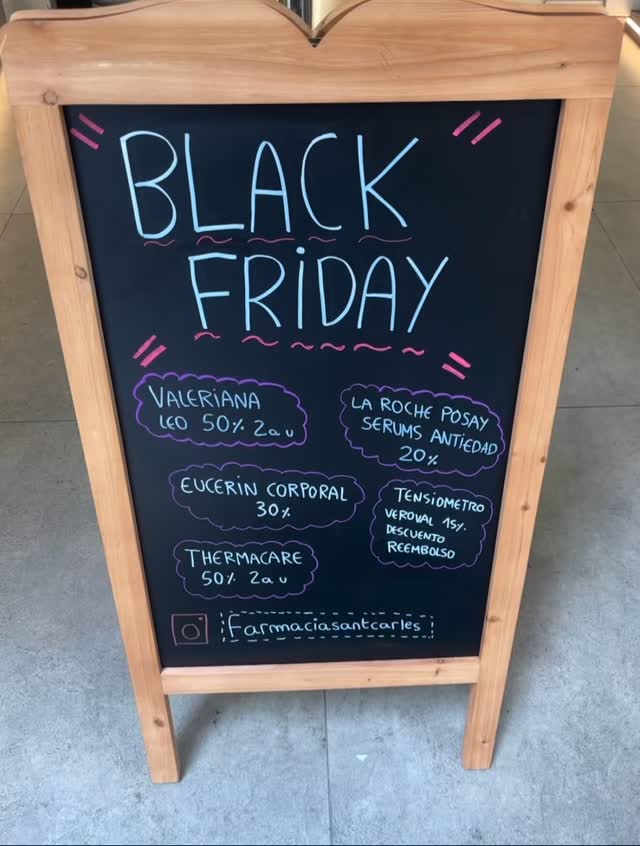 BLACK
FRiDAY
VALERIANA
LEO 50% 2a u
LA ROCHE POSAY
SERUMS ANTIEDAD
20%
EUCERIN CORPORAL
30%
TENSIOMETRO
VEROVAL 15%
DESCUENTO
REEMBOLSO
THERMACARE
50% 2a u
farmaciasantcarles